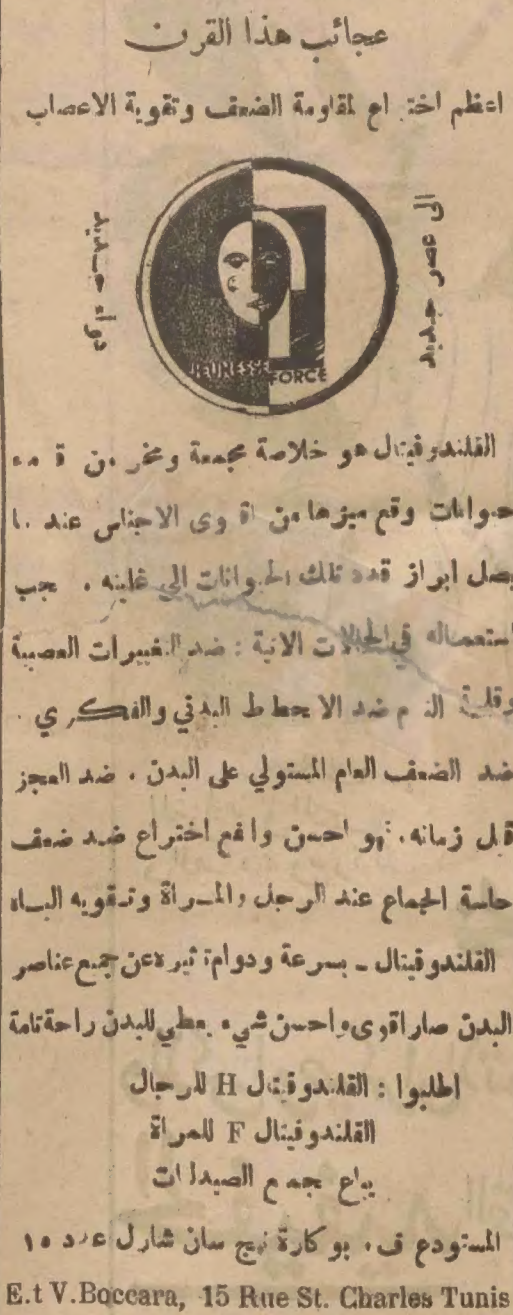 عجائب هذا القرن
اعظم اختراع لمقاومة الضعف وتقوية الاعصاب
الى عصر جديد
دواء جديد
JEUNESSE
FORCE
القلندوفيتال هو خلاصة مجمعة ومخر من
حيوانات وقع ميزها من اقوى الاجناس عند ما
يصل ابراز قدد تلك الحيوانات الي غايته . يجب
استعماله في الحالات الاتية : ضد التغييرات العصبية
وقلة النوم ضد الانحطاط البدني والفكري .
ضد الضعف العام المستولي على البدن . ضد العجز
قبل زمانه . هو احسن وانفع اختراع ضد ضعف
حاسة الجماع عند الرجل والمرأة وتقويه الباه
القلندوفيتال - بسرعة ودوام تاثيره عن جميع عناصر
البدن صار اقوى واحسن شيء يعطي للبدن راحة تامة
اطلبوا : القلندوفيتال H للرجال
القلندوفيتال F للمراة
يباع بجميع الصيدليات
المستودع ف . بوكارة نهج سان شارل عدد ١٥
E.t V.Boccara, 15 Rue St. Charles Tunis